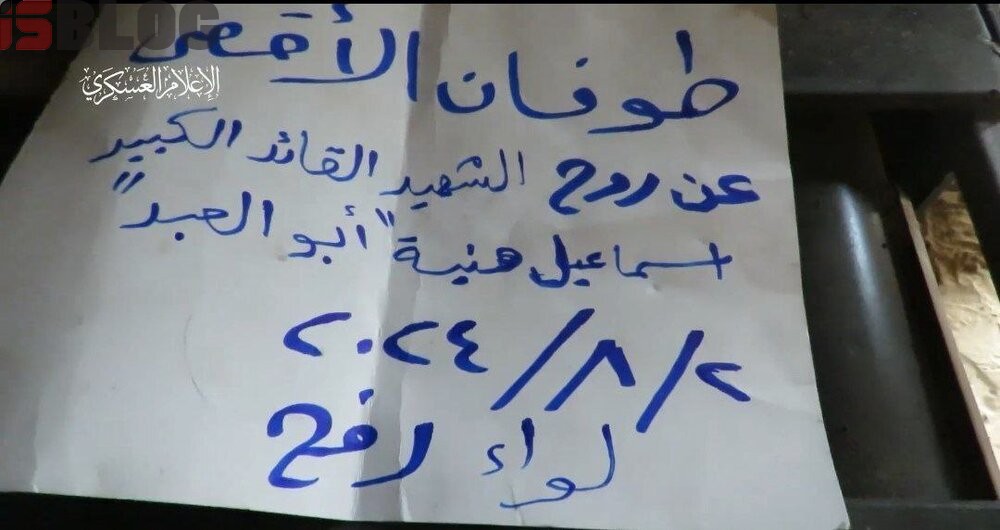 isBLOG
طوفان الأقصى
الإعلام العسكري
عن روح الشهيد القائد الكبير
اسماعيل هنية "أبو العبد"
٢/٨/٢٠٢٤
لواء رفح